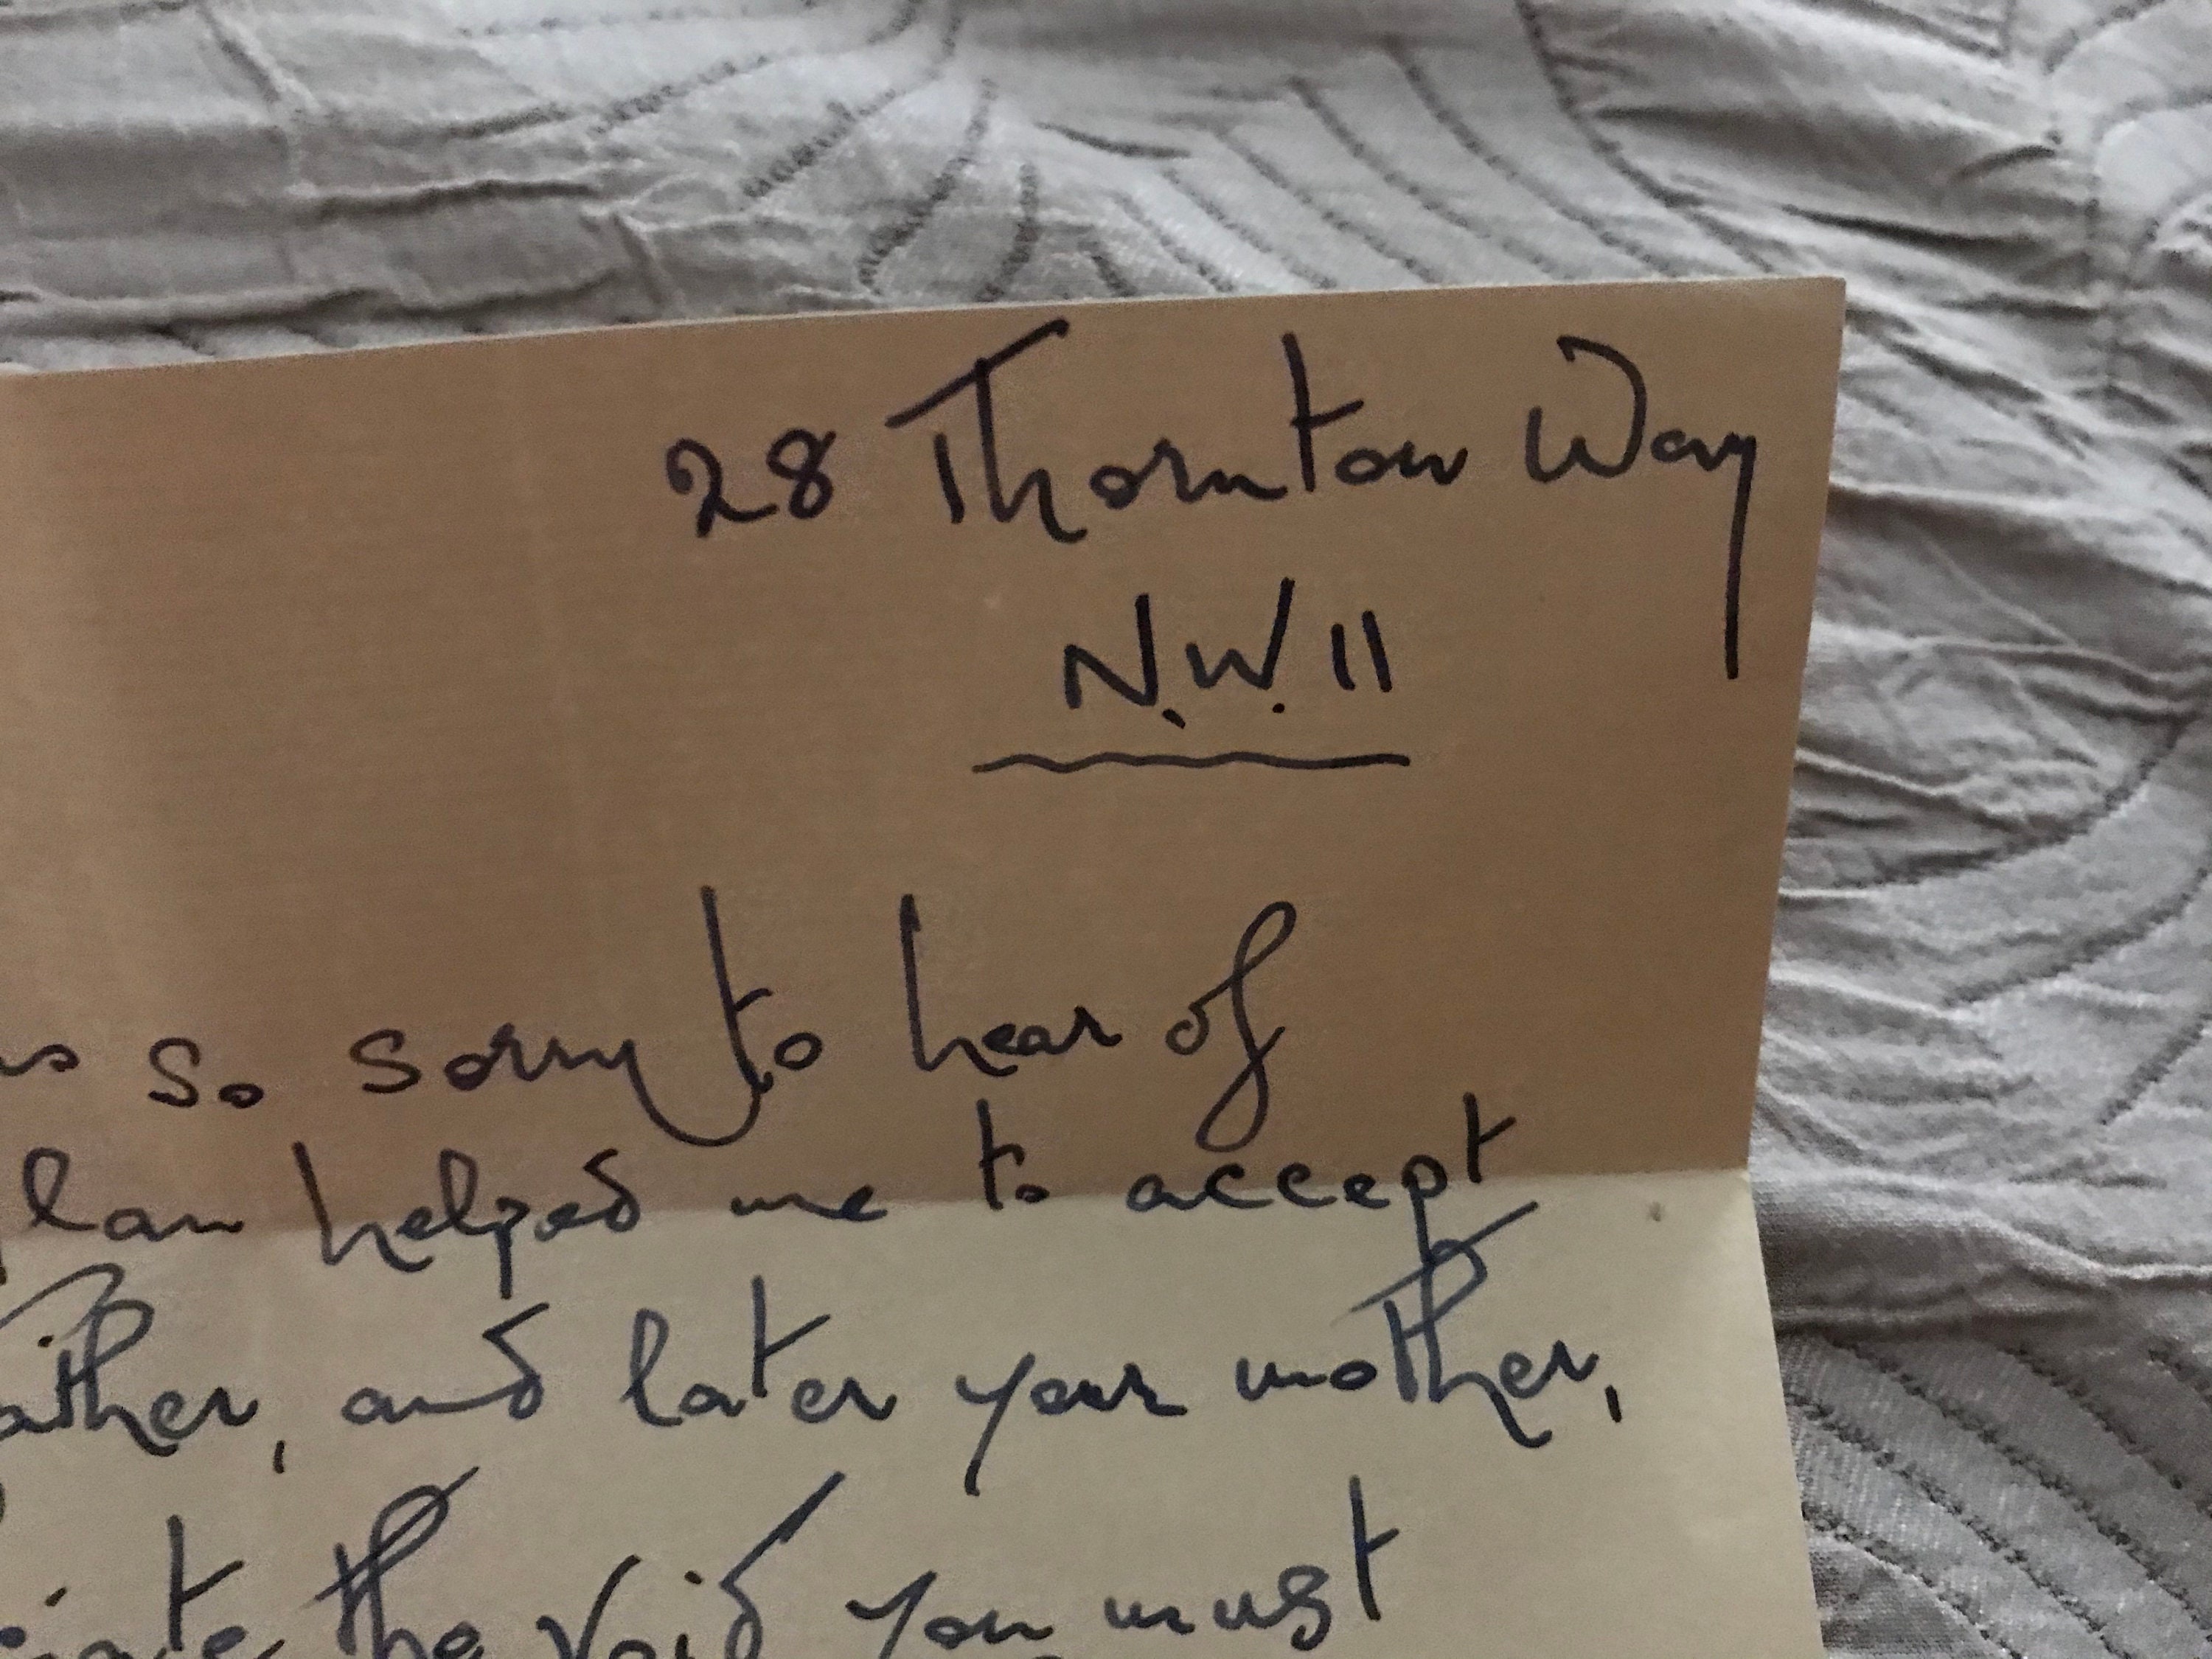 28 Thornton Way
N.W. 11
so sorry to hear of
lan helped me to accept
ather, and later your mother,
iate the void you must